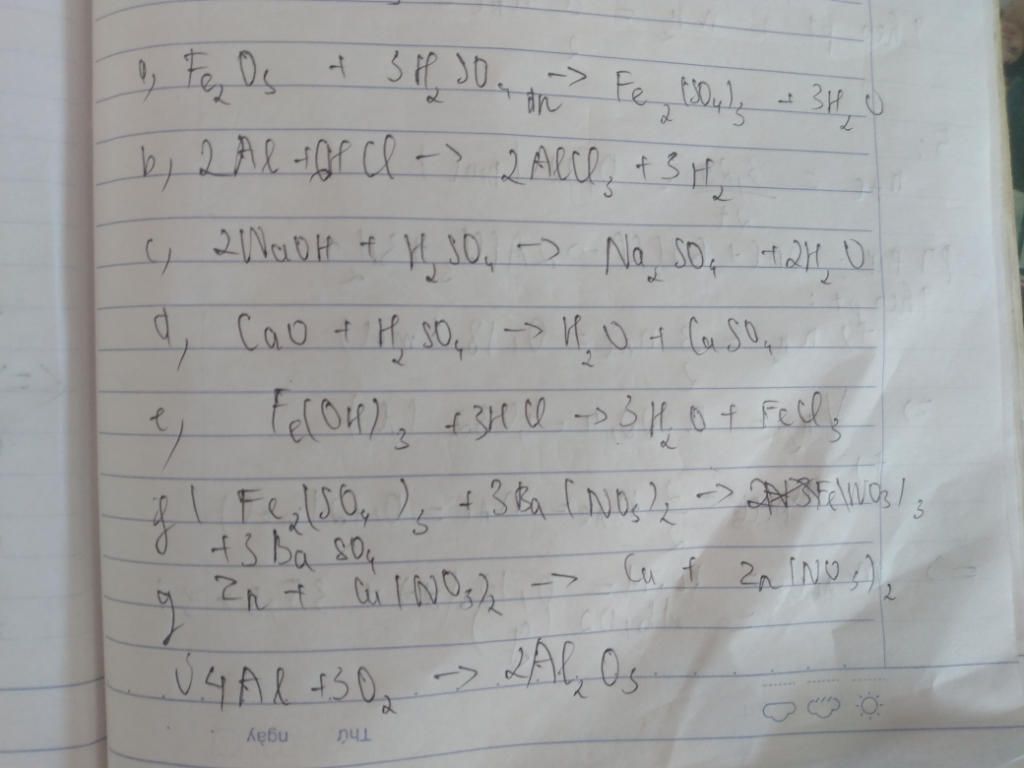 a, Fe2O3 + 3H2SO4 đn -> Fe2(SO4)3 + 3H2O
b, 2Al + 6HCl -> 2AlCl3 + 3H2
c, 2NaOH + H2SO4 -> Na2SO4 + 2H2O
d, CaO + H2SO4 -> H2O + CaSO4
e, Fe(OH)3 + 3HCl -> 3H2O + FeCl3
f( Fe2(SO4)3 + 3Ba(NO3)2 -> 2Fe(NO3)3
+ 3BaSO4
g Zn + Cu(NO3)2 -> Cu + Zn(NO3)2
4Al + 3O2 -> 2Al2O3
Thứ ngày